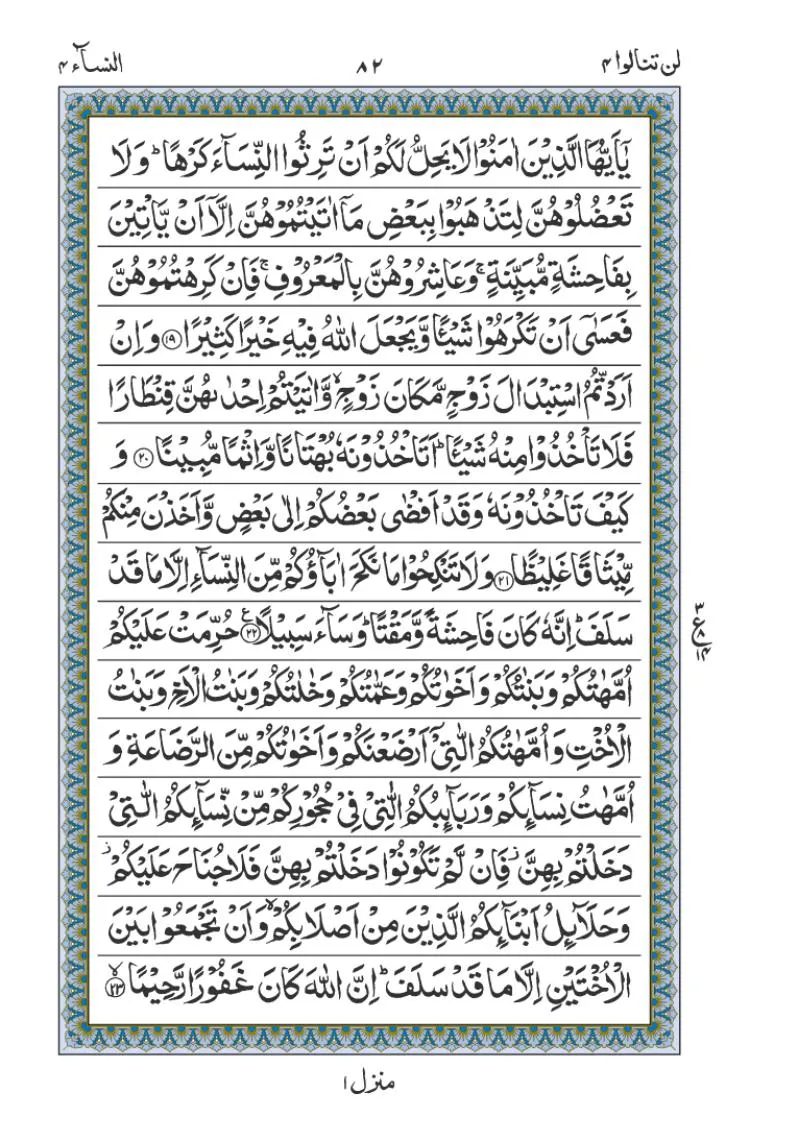 لن تنالوا ۴ ۸۲ النسآء ۴
یٰۤاَیُّهَا الَّذِیْنَ اٰمَنُوْا لَا یَحِلُّ لَكُمْ اَنْ تَرِثُوا النِّسَآءَ كَرْهًا ؕ وَ لَا
تَعْضُلُوْهُنَّ لِتَذْهَبُوْا بِبَعْضِ مَاۤ اٰتَیْتُمُوْهُنَّ اِلَّاۤ اَنْ یَّاْتِیْنَ
بِفَاحِشَةٍ مُّبَیِّنَةٍ ۚ وَ عَاشِرُوْهُنَّ بِالْمَعْرُوْفِ ۚ فَاِنْ كَرِهْتُمُوْهُنَّ
فَعَسٰۤی اَنْ تَكْرَهُوْا شَیْـًٔا وَّ یَجْعَلَ اللّٰهُ فِیْهِ خَیْرًا كَثِیْرًا ۝۱۹ وَ اِنْ
اَرَدْتُّمُ اسْتِبْدَالَ زَوْجٍ مَّكَانَ زَوْجٍ ۙ وَّ اٰتَیْتُمْ اِحْدٰىهُنَّ قِنْطَارًا
فَلَا تَاْخُذُوْا مِنْهُ شَیْـًٔا ؕ اَتَاْخُذُوْنَهٗ بُهْتَانًا وَّ اِثْمًا مُّبِیْنًا ۝۲۰ وَ
كَیْفَ تَاْخُذُوْنَهٗ وَ قَدْ اَفْضٰی بَعْضُكُمْ اِلٰی بَعْضٍ وَّ اَخَذْنَ مِنْكُمْ
مِّیْثَاقًا غَلِیْظًا ۝۲۱ وَ لَا تَنْكِحُوْا مَا نَكَحَ اٰبَآؤُكُمْ مِّنَ النِّسَآءِ اِلَّا مَا قَدْ
سَلَفَ ؕ اِنَّهٗ كَانَ فَاحِشَةً وَّ مَقْتًا ؕ وَ سَآءَ سَبِیْلًا ۝۲۲ ع حُرِّمَتْ عَلَیْكُمْ
۳ ع ۸ ۱۴
اُمَّهٰتُكُمْ وَ بَنٰتُكُمْ وَ اَخَوٰتُكُمْ وَ عَمّٰتُكُمْ وَ خٰلٰتُكُمْ وَ بَنٰتُ الْاَخِ وَ بَنٰتُ
الْاُخْتِ وَ اُمَّهٰتُكُمُ الّٰتِیْۤ اَرْضَعْنَكُمْ وَ اَخَوٰتُكُمْ مِّنَ الرَّضَاعَةِ وَ
اُمَّهٰتُ نِسَآىِٕكُمْ وَ رَبَآىِٕبُكُمُ الّٰتِیْ فِیْ حُجُوْرِكُمْ مِّنْ نِّسَآىِٕكُمُ الّٰتِیْ
دَخَلْتُمْ بِهِنَّ ؗ فَاِنْ لَّمْ تَكُوْنُوْا دَخَلْتُمْ بِهِنَّ فَلَا جُنَاحَ عَلَیْكُمْ ؗ
وَ حَلَآىِٕلُ اَبْنَآىِٕكُمُ الَّذِیْنَ مِنْ اَصْلَابِكُمْ ۙ وَ اَنْ تَجْمَعُوْا بَیْنَ
الْاُخْتَیْنِ اِلَّا مَا قَدْ سَلَفَ ؕ اِنَّ اللّٰهَ كَانَ غَفُوْرًا رَّحِیْمًا ۝۲۳ ۙ
منزل ۱